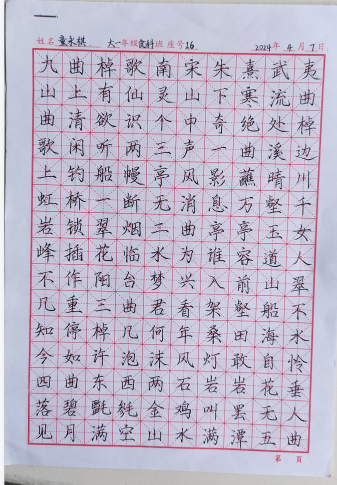 姓名 童永棋 大一年级食科班 座号16 2024年4月7日
九曲棹歌南宋朱熹武夷
山上有仙灵山下寒流曲
曲清欲识个中奇绝处棹
歌闲听两三声一曲溪边
上钓船幔亭风影蘸晴川
虹桥一断无消息万壑千
岩锁翠烟二曲亭亭玉女
峰插花临水为谁容道人
不作阳台梦兴入前山翠
几重三曲君看架壑船不
知停棹几何年桑田海水
今如许泡沫风灯敢自怜
四曲东西两石岩岩花垂
落碧毵金鸡叫罢无人
见月满空山水满潭五曲
第 页